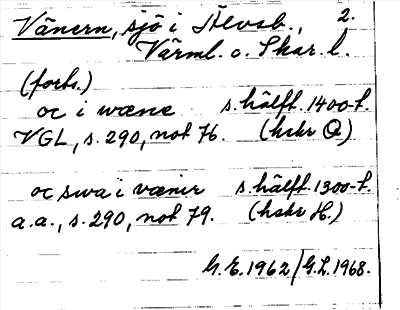 Vänern, sjö i Älvsb., 2.
Värml. o. Skar. l.
(forts.)
oc i wæne s. hälft. 1400-t.
VGL, s. 290, not 76. (hskr O)
oc swa i vænir s. hälft. 1300-t.
a.a., s. 290, not 79. (hskr H.)
G.E. 1962/G.L. 1968.